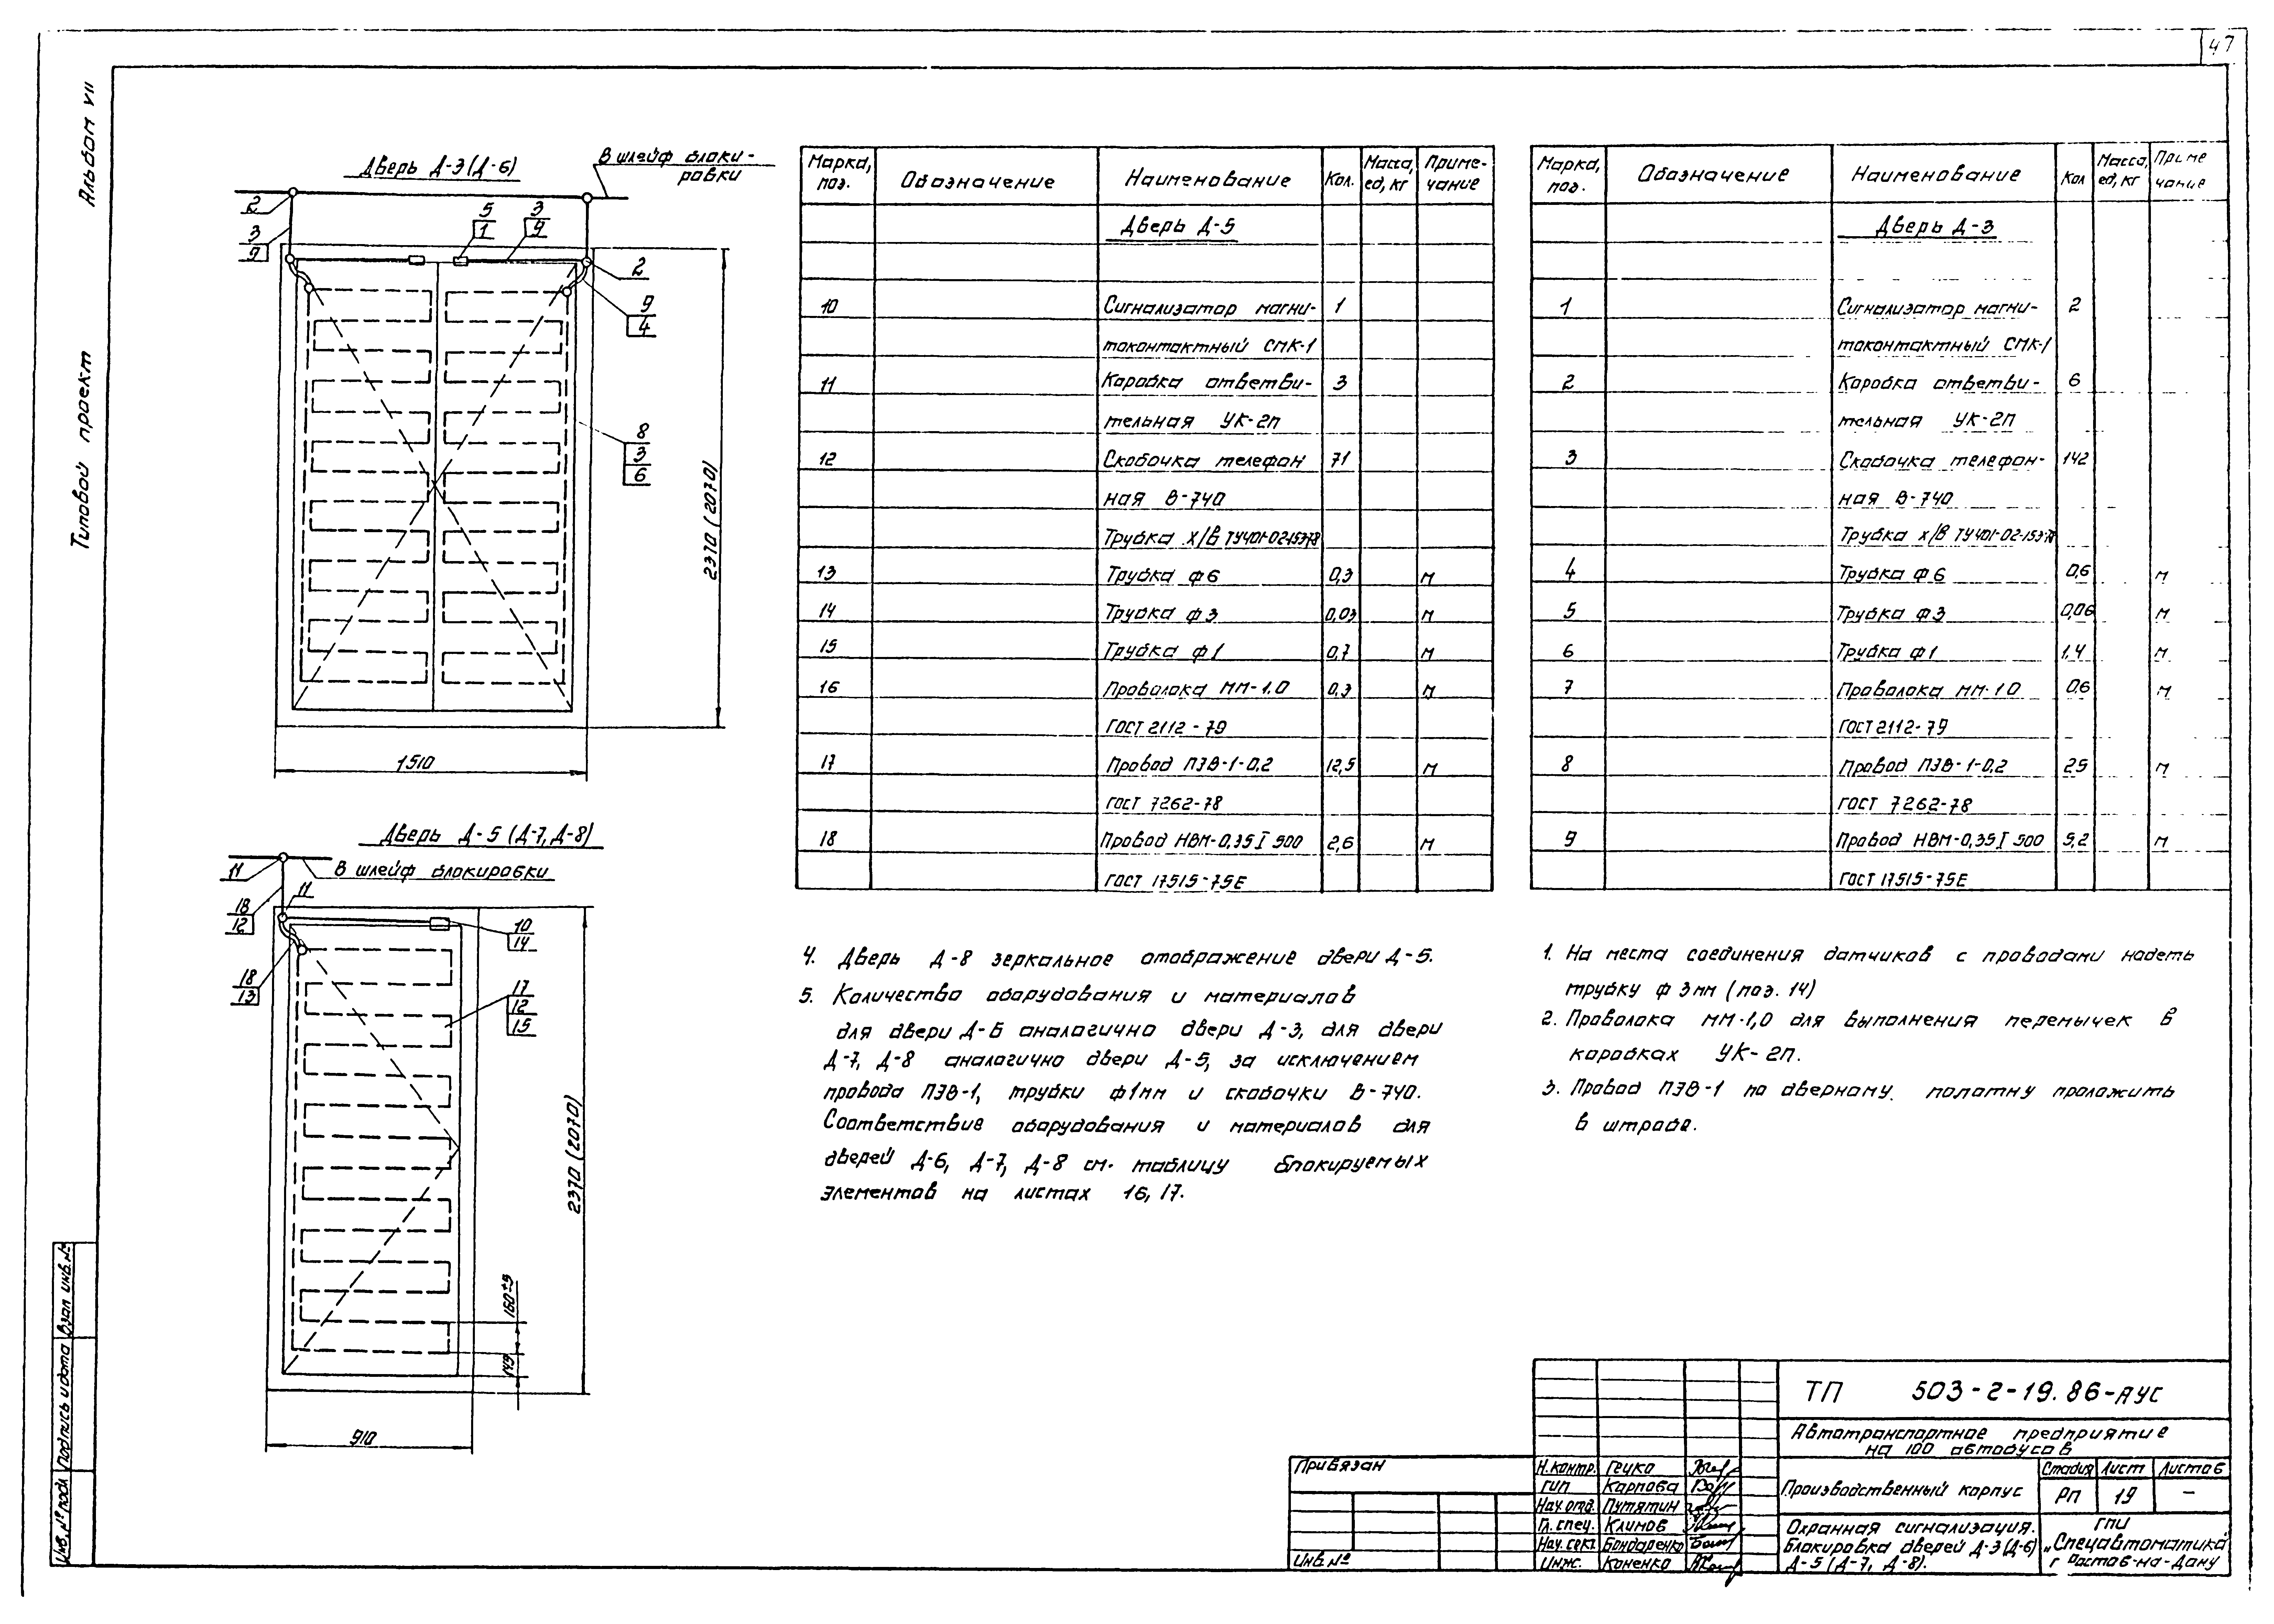 47
Альбом VII
Типовой проект
Дверь Д-3 (Д-6)
В шлейф блоки-
ровки
2
3
9
5
1
3
9
2
9
4
8
3
6
2370 (2070)
1510
Дверь Д-5 (Д-7, Д-8)
В шлейф блокировки
11
11
18
12
10
14
18
13
17
12
15
2370 (2070)
160±5
149
910
Марка, поз. Обозначение Наименование Кол. Масса, ед, кг Приме-чание
Дверь Д-5
10 Сигнализатор магни- 1
токонтактный СМК-1
11 Коробка ответви- 3
тельная УК-2п
12 Скобочка телефон 71
ная В-740
Трубка х/в ТУ401-02-153-78
13 Трубка ф6 0,3 м
14 Трубка ф3 0,03 м
15 Трубка ф1 0,7 м
16 Проволока ММ-1,0 0,3 м
ГОСТ 2112-79
17 Провод ПЭВ-1-0,2 12,5 м
ГОСТ 7262-78
18 Провод НВМ-0,35 I 500 2,6 м
ГОСТ 17515-75Е
Марка, поз. Обозначение Наименование Кол Масса, ед, кг Приме чание
Дверь Д-3
1 Сигнализатор магни- 2
токонтактный СМК-1
2 Коробка ответви- 6
тельная УК-2П
3 Скобочка телефон- 142
ная В-740
Трубка х/в ТУ401-02-153-78
4 Трубка ф6 0,6 м
5 Трубка ф3 0,06 м
6 Трубка ф1 1,4 м
7 Проволока ММ-1.0 0,6 м
ГОСТ 2112-79
8 Провод ПЭВ-1-0,2 25 м
ГОСТ 7262-78
9 Провод НВМ-0,35 I 500 5,2 м
ГОСТ 17515-75Е
4. Дверь Д-8 зеркальное отображение двери Д-5.
5. Количество оборудования и материалов
для двери Д-6 аналогично двери Д-3, для двери
Д-7, Д-8 аналогично двери Д-5, за исключением
провода ПЭВ-1, трубки ф1мм и скобочки В-740.
Соответствие оборудования и материалов для
дверей Д-6, Д-7, Д-8 см. таблицу блокируемых
элементов на листах 16, 17.
1. На места соединения датчиков с проводами надеть
трубку ф 3мм (поз. 14)
2. Проволока ММ-1,0 для выполнения перемычек в
коробках УК-2п.
3. Провод ПЭВ-1 по дверному полотну проложить
в штробе.
ТП 503-2-19.86-АУС
Автотранспортное предприятие
на 100 автобусов
Производственный корпус
Стадия Лист Листов
РП 19 -
Охранная сигнализация.
Блокировка дверей Д-3 (Д-6)
Д-5 (Д-7, Д-8).
ГПИ
„Спецавтоматика"
г Ростов-на-Дону
Н.контр. Гецко
ГИП Карпова
Нач.отд. Путятин
Гл.спец. Климов
Нач.сект. Бондаренко
Инж. Коненко
Привязан
Инв.№
Инв.№ подл Подпись и дата Взам инв.№